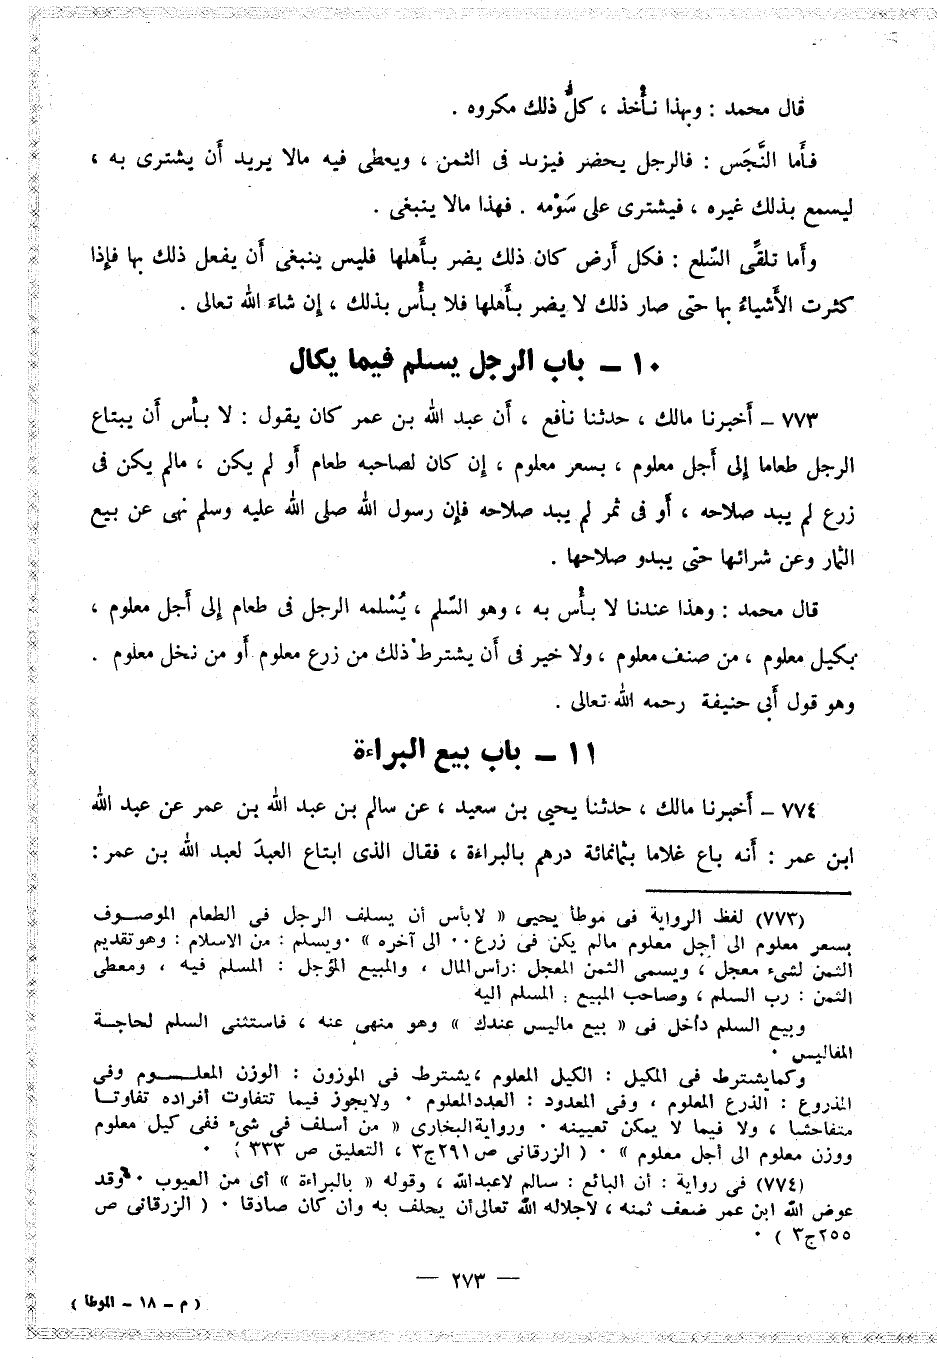 قال محمد : وبهذا نأْخذ ، كلُّ ذلك مكروه .
فأَما النَّجَس : فالرجل يحضر فيزيد فى الثمن ، ويعطى فيه مالا يريد أَن يشترى به ،
ليسمع بذلك غيره ، فيشترى على سَوْمه . فهذا مالا ينبغى .
وأَما تلقِّى السّلع : فكل أَرض كان ذلك يضر بأَهلها فليس ينبغى أَن يفعل ذلك بها فإِذا
كثرت الأَشياءُ بها حتى صار ذلك لا يضر بأَهلها فلا بأْس بذلك ، إِن شاءَ الله تعالى .
١٠ – باب الرجل يسلم فيما يكال
٧٧٣ – أَخبرنا مالك ، حدثنا نافع ، أَن عبد الله بن عمر كان يقول : لا بأْس أَن يبتاع
الرجل طعاما إِلى أَجل معلوم ، بسعر معلوم ، إِن كان لصاحبه طعام أَو لم يكن ، مالم يكن فى
زرع لم يبد صلاحه ، أَو فى ثمر لم يبد صلاحه فإِن رسول الله صلى الله عليه وسلم نهى عن بيع
الثمار وعن شرائها حتى يبدو صلاحها .
قال محمد : وهذا عندنا لا بأْس به ، وهو السّلم ، يُسْلمه الرجل فى طعام إِلى أَجل معلوم ،
بكيل معلوم ، من صنف معلوم ، ولا خير فى أَن يشترط ذلك من زرع معلوم أَو من نخل معلوم .
وهو قول أَبى حنيفة رحمه الله تعالى .
١١ – باب بيع البراءة
٧٧٤ – أَخبرنا مالك ، حدثنا يحيى بن سعيد ، عن سالم بن عبد الله بن عمر عن عبد الله
ابن عمر : أَنه باع غلاما بثمانمائة درهم بالبراءَة ، فقال الذى ابتاع العبدَ لعبد الله بن عمر :
(٧٧٣) لفظ الرواية فى موطأ يحيى « لابأس أن يسلف الرجل فى الطعام الموصوف
بسعر معلوم الى أجل معلوم مالم يكن فى زرع٠٠ الى آخره » ٠ويسلم : من الاسلام : وهو تقديم
الثمن لشىء معجل ، ويسمى الثمن المعجل :رأس المال ، والمبيع المؤجل : المسلم فيه ، ومعطى
الثمن : رب السلم ، وصاحب المبيع : المسلم اليه
وبيع السلم داخل فى « بيع ماليس عندك » وهو منهى عنه ، فاستثنى السلم لحاجة
المفاليس ٠
وكما يشترط فى المكيل : الكيل المعلوم ،يشترط فى الموزون : الوزن المعلـوم وفى
المذروع : الذرع المعلوم ، وفى المعدود : العدد المعلوم ٠ ولايجوز فيما تتفاوت أفراده تفاوتا
متفاحشا ، ولا فيما لا يمكن تعيينه ٠ ورواية البخارى « من أسلف فى شىء ففى كيل معلوم
ووزن معلوم الى أجل معلوم » ٠ ( الزرقانى ص ٢٩١ج٣ ، التعليق ص ٣٣٣ ) ٠
(٧٧٤) فى رواية : أن البائع : سالم لاعبدالله ، وقوله « بالبراءة » أى من العيوب ٠ وقد
عوض الله ابن عمر ضعف ثمنه ، لاجلاله الله تعالى أن يحلف به وان كان صادقا ٠ ( الزرقانى ص
٢٥٥ج٣ ) ٠
— ٢٧٣ —
( م – ١٨ – الموطأ )